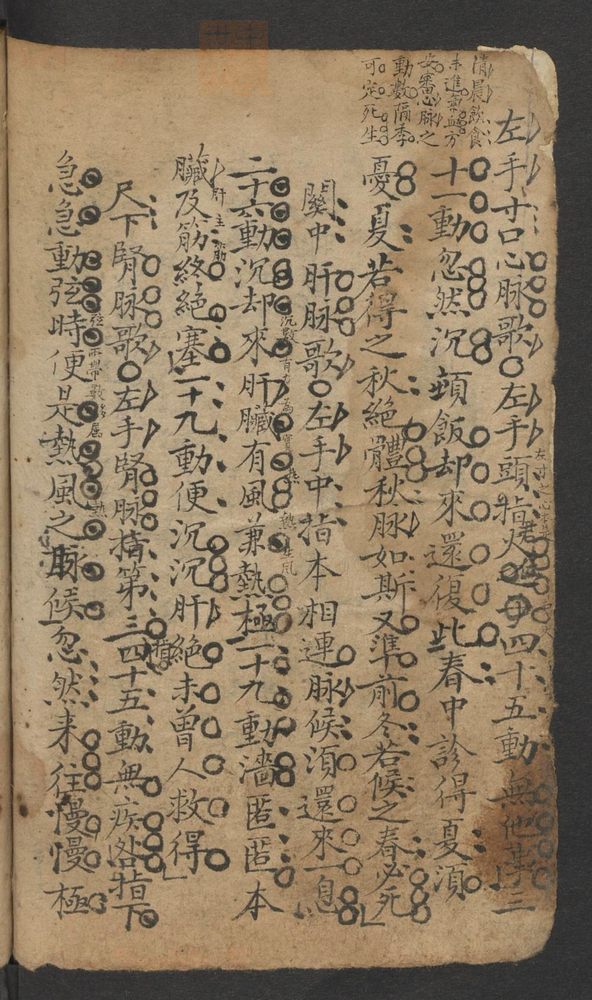 清晨飲食
未進氣血方
安審心脉之
動數隔季
可定死生
左手寸口心脉歌左手頭指火四十五動無他事三
十一動忽然沉頓飯却來還復此春中診得夏須
憂夏若得之秋絶體秋脉如斯又準前冬若候之春必死
關中肝脉歌左手中指本相連脉候須還來一息
二十六動沉却來肝臟有風兼熱極二十九動濇匿匿本
臟及筋終絶塞一十九動便沉沉肝絶未曾人救得
肝主筋
尺下腎脉歌左手腎脉指第三四十五動無疾咎指下
急急動弦時便是熱風之脉候忽然來往慢慢極